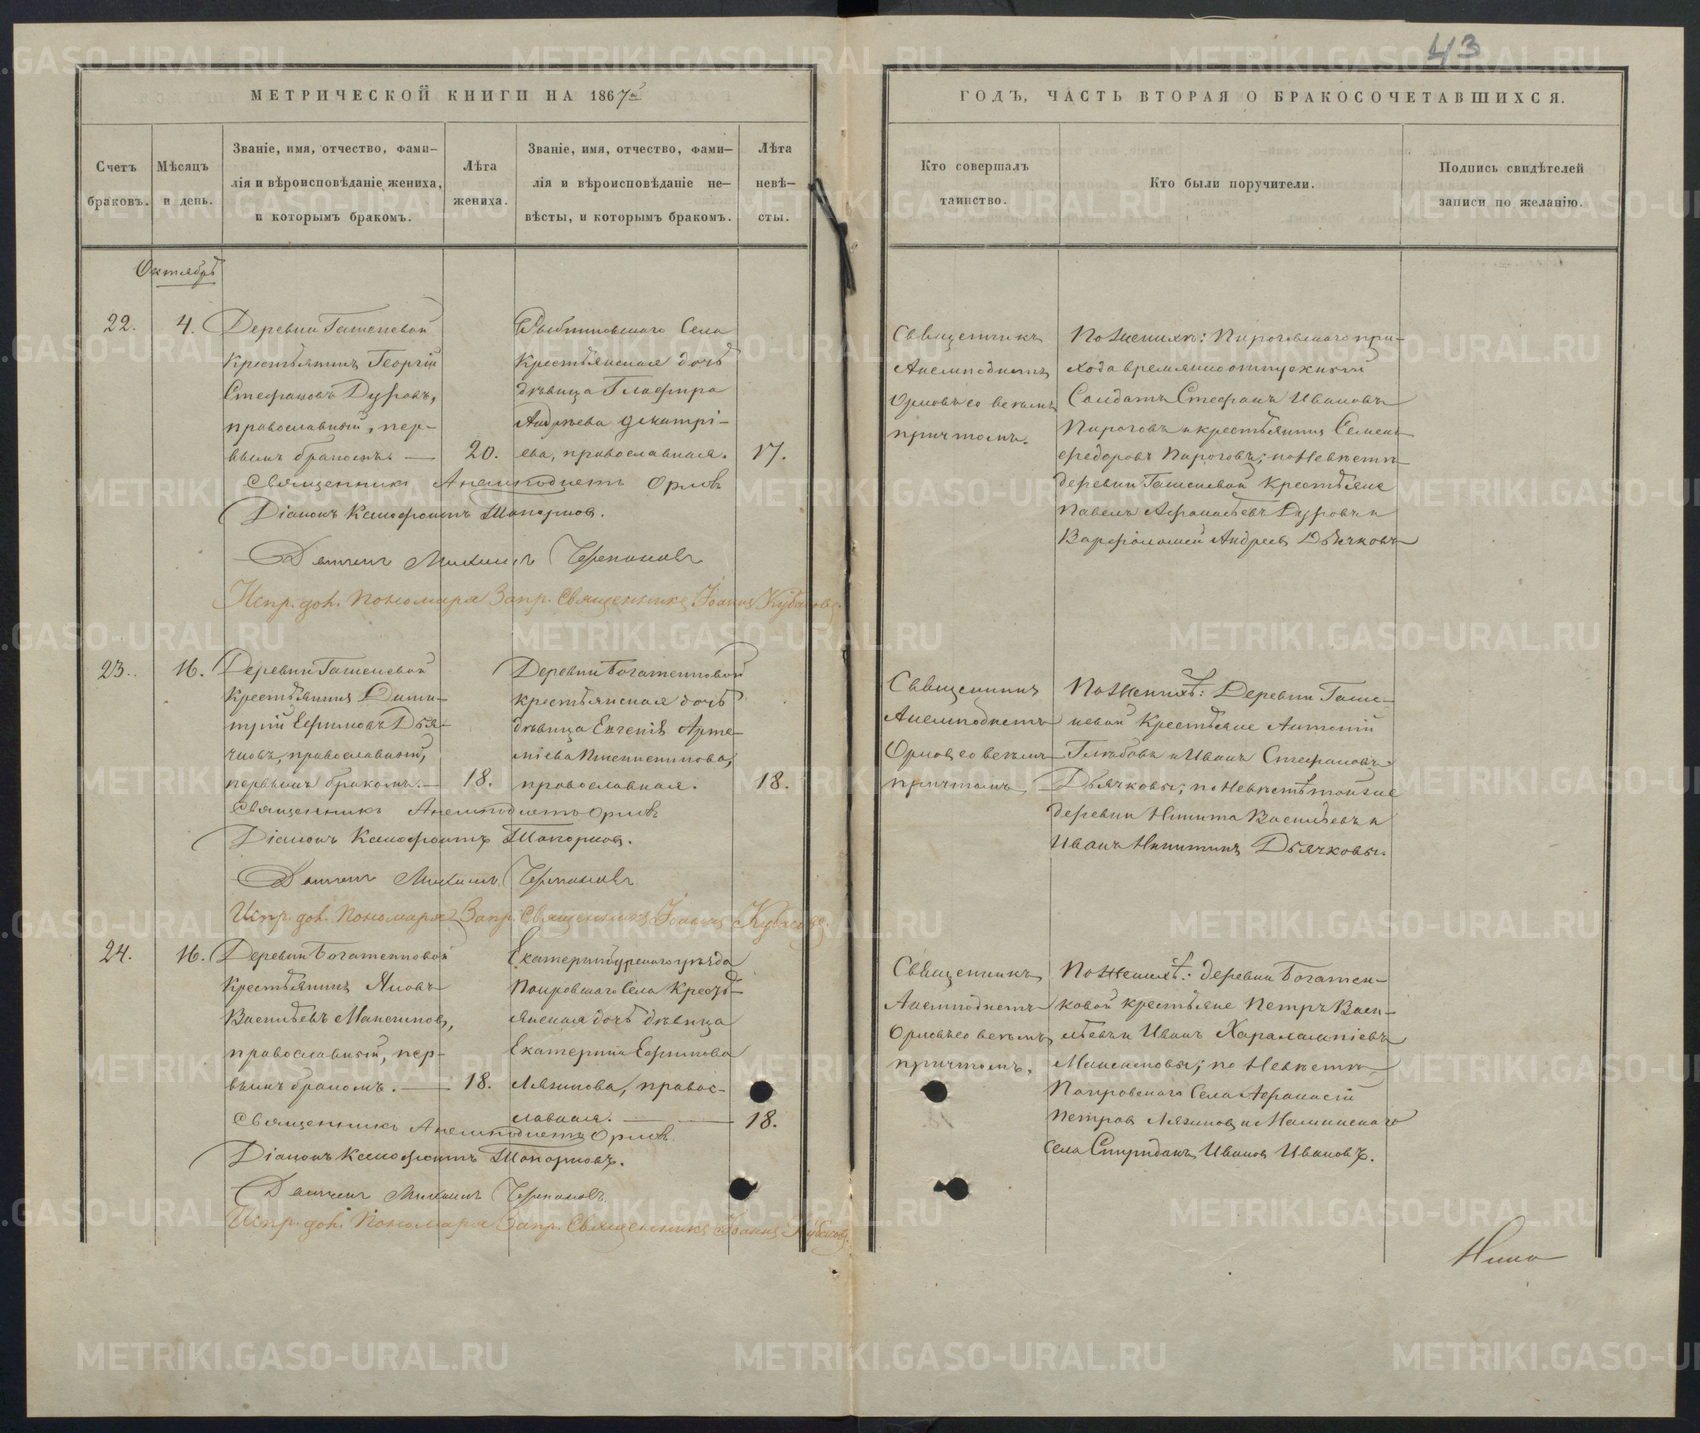 43
МЕТРИЧЕСКОЙ КНИГИ НА 1867й
ГОДЪ, ЧАСТЬ ВТОРАЯ О БРАКОСОЧЕТАВШИХСЯ.
Счетъ
браковъ.
Мѣсяцъ
и день.
Званіе, имя, отчество, фами-
лія и вѣроисповѣданіе жениха,
и которымъ бракомъ.
Лѣта
жениха.
Званіе, имя, отчество, фами-
лія и вѣроисповѣданіе не-
вѣсты, и которымъ бракомъ.
Лѣта
невѣ-
сты.
Кто совершалъ
таинство.
Кто были поручители.
Подпись свидѣтелей
записи по желанію.
Октябрь
22.
4.
Деревни Гашеневой
Крестьянинъ Георгій
Стефановъ Дуровъ,
православный, пер-
вымъ бракомъ.
20.
Села
Крестьянская дочь
дѣвица Глафира
Андреева Димитрі-
ева, православная.
17.
Священникъ
Анемподистъ
Орловъ со всѣмъ
причтомъ.
По женихѣ: Пироговскаго при-
хода временно отпускный
Солдатъ Стефанъ Ивановъ
Пироговъ и крестьянинъ Семенъ
Федоровъ Пироговъ; по невѣстѣ
деревни Гашеневой Крестьяне
Павелъ Афанасьевъ Дуровъ и
Варфоломей Андреевъ Дьячковъ
Священникъ Анемподистъ Орловъ
Діаконъ Ксенофонтъ Топорковъ.
Дьячекъ Михаилъ Черепановъ
Испр. дол. Пономаря Запр. Священникъ Іоаннъ
23.
16.
Деревни Гашеневой
Крестьянинъ Дими-
трій Ефимовъ Дья-
чковъ, православный,
первымъ бракомъ.
18.
Деревни Богатенковой
крестьянская дочь
дѣвица Евгенія Арте-
міева Пшеничникова,
православная.
18.
Священникъ
Анемподистъ
Орловъ со всѣмъ
причтомъ
По женихѣ: Деревни Гаше-
невой Крестьяне Антоній
Глѣбовъ и Иванъ Стефановъ
Дьячковы; по невѣстѣ той же
деревни Никита Васильевъ и
Иванъ Никитинъ Дьячковы.
Священникъ Анемподистъ Орловъ
Діаконъ Ксенофонтъ Топорковъ.
Дьячекъ Михаилъ Черепановъ
Испр. дол. Пономаря Запр. Священникъ Іоаннъ
24.
16.
Деревни Богатенковой
Крестьянинъ Яковъ
Васильевъ Максимовъ,
православный, пер-
вымъ бракомъ.
18.
Екатеринбургскаго уѣзда
Покровскаго Села Кресть-
янская дочь дѣвица
Екатерина Ефимова
Лязгинова, правос-
лавная.
18.
Священникъ
Анемподистъ
Орловъ со всѣмъ
причтомъ.
По женихѣ: деревни Богатен-
ковой крестьяне Петръ Васи-
льевъ и Иванъ Харалампіевъ
Максимовы; по невѣстѣ
Покровскаго Села Афанасій
Петровъ и Маминскаго
Села Спиридонъ Ивановъ Ивановъ.
Священникъ Анемподистъ Орловъ
Діаконъ Ксенофонтъ Топорковъ.
Дьячекъ Михаилъ Черепановъ
Испр. дол. Пономаря Запр. Священникъ Іоаннъ
METRIKI.GASO-URAL.RU